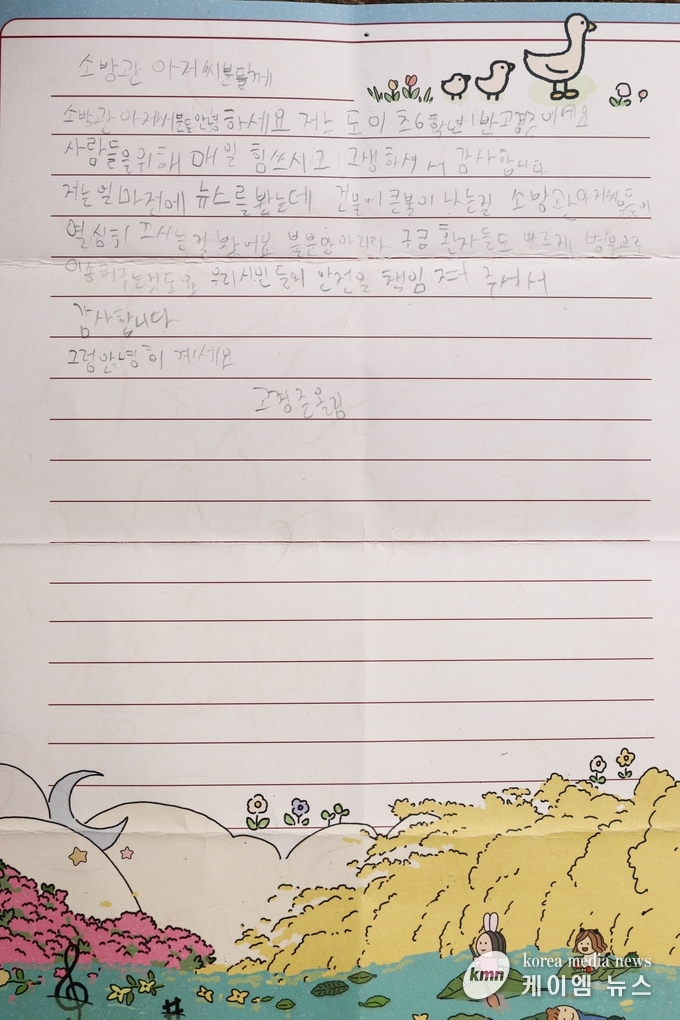 소방관 아저씨분들께
소방관 아저씨분들 안녕하세요 저는 도이초 6학년 1반 고평준이에요
사람들을 위해 매일 힘쓰시고 고생하셔서 감사합니다
저는 얼마전에 뉴스를 봤는데 건물에 큰불이 나는걸 소방관아저씨분들이
열심히 끄시는걸 봤어요 불뿐만아니라 구급 환자들도 빠르게 병원으로
이송해주는것도요 우리시민들의 안전을 책임져 주셔서
감사합니다
그럼안녕히 계세요
고평준올림
kmn korea media news
케이엠 뉴스